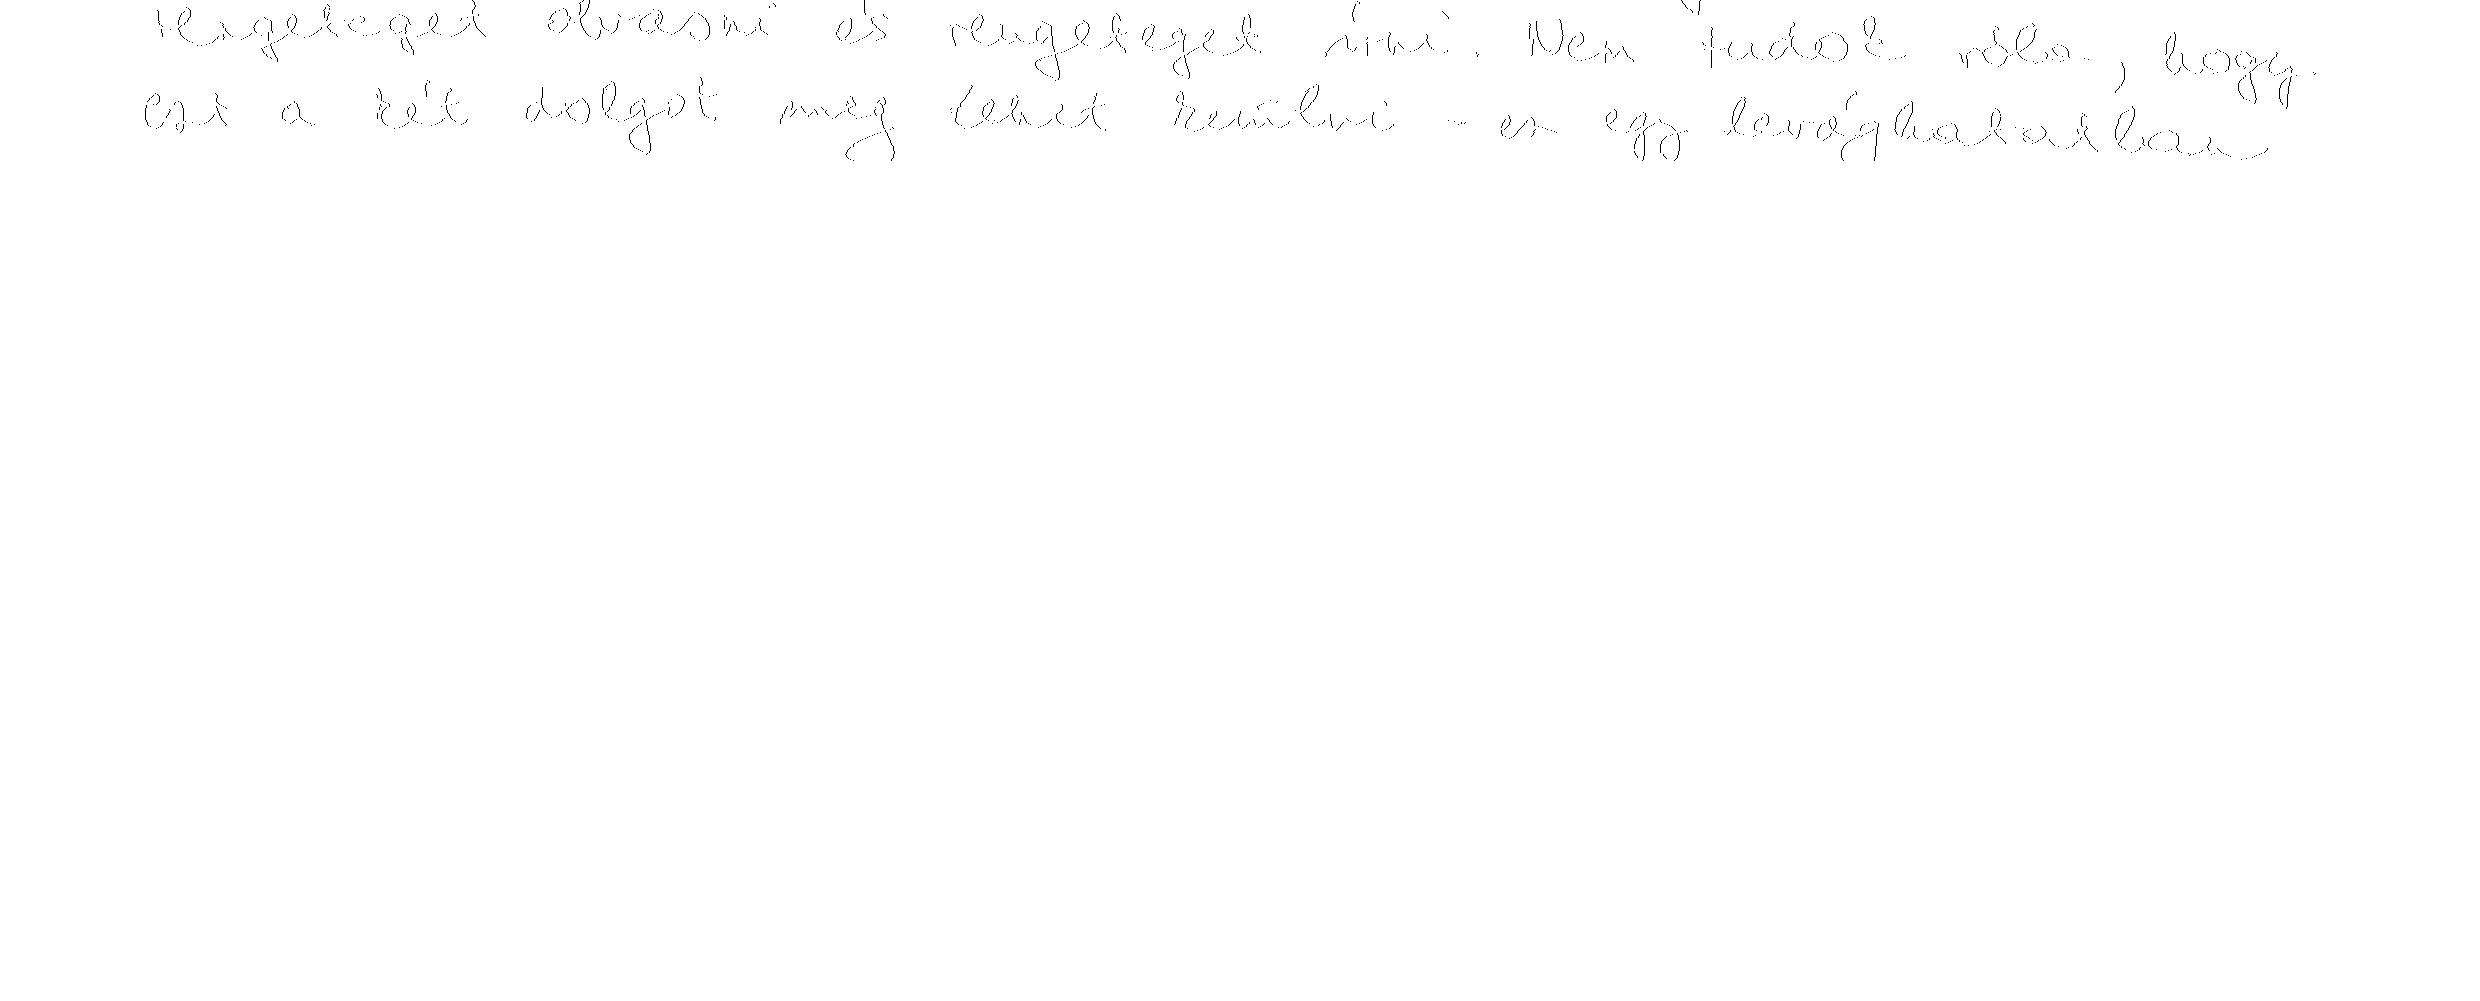 rengeteget olvasni és rengeteget írni. Nem tudok róla, hogy
ezt a két dolgot meg lehet kerülni - ez egy levághatatlan